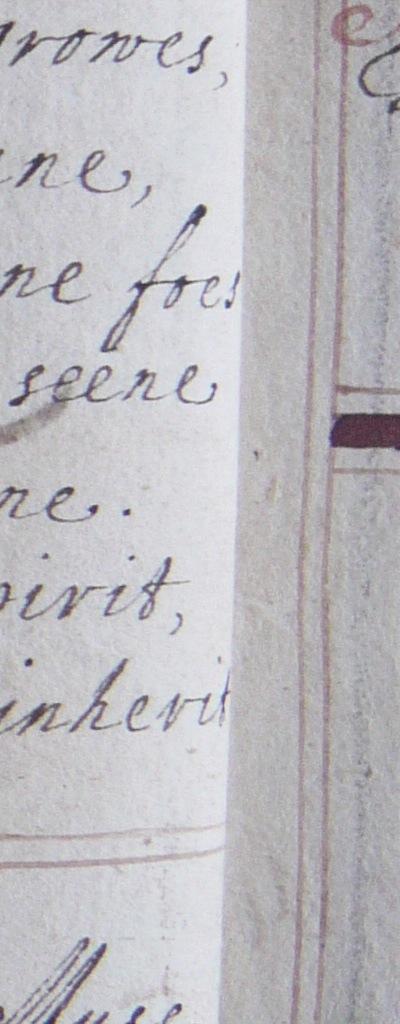 growes,
ne,
ne foes
seene
ne.
pirit,
inherit
Muse